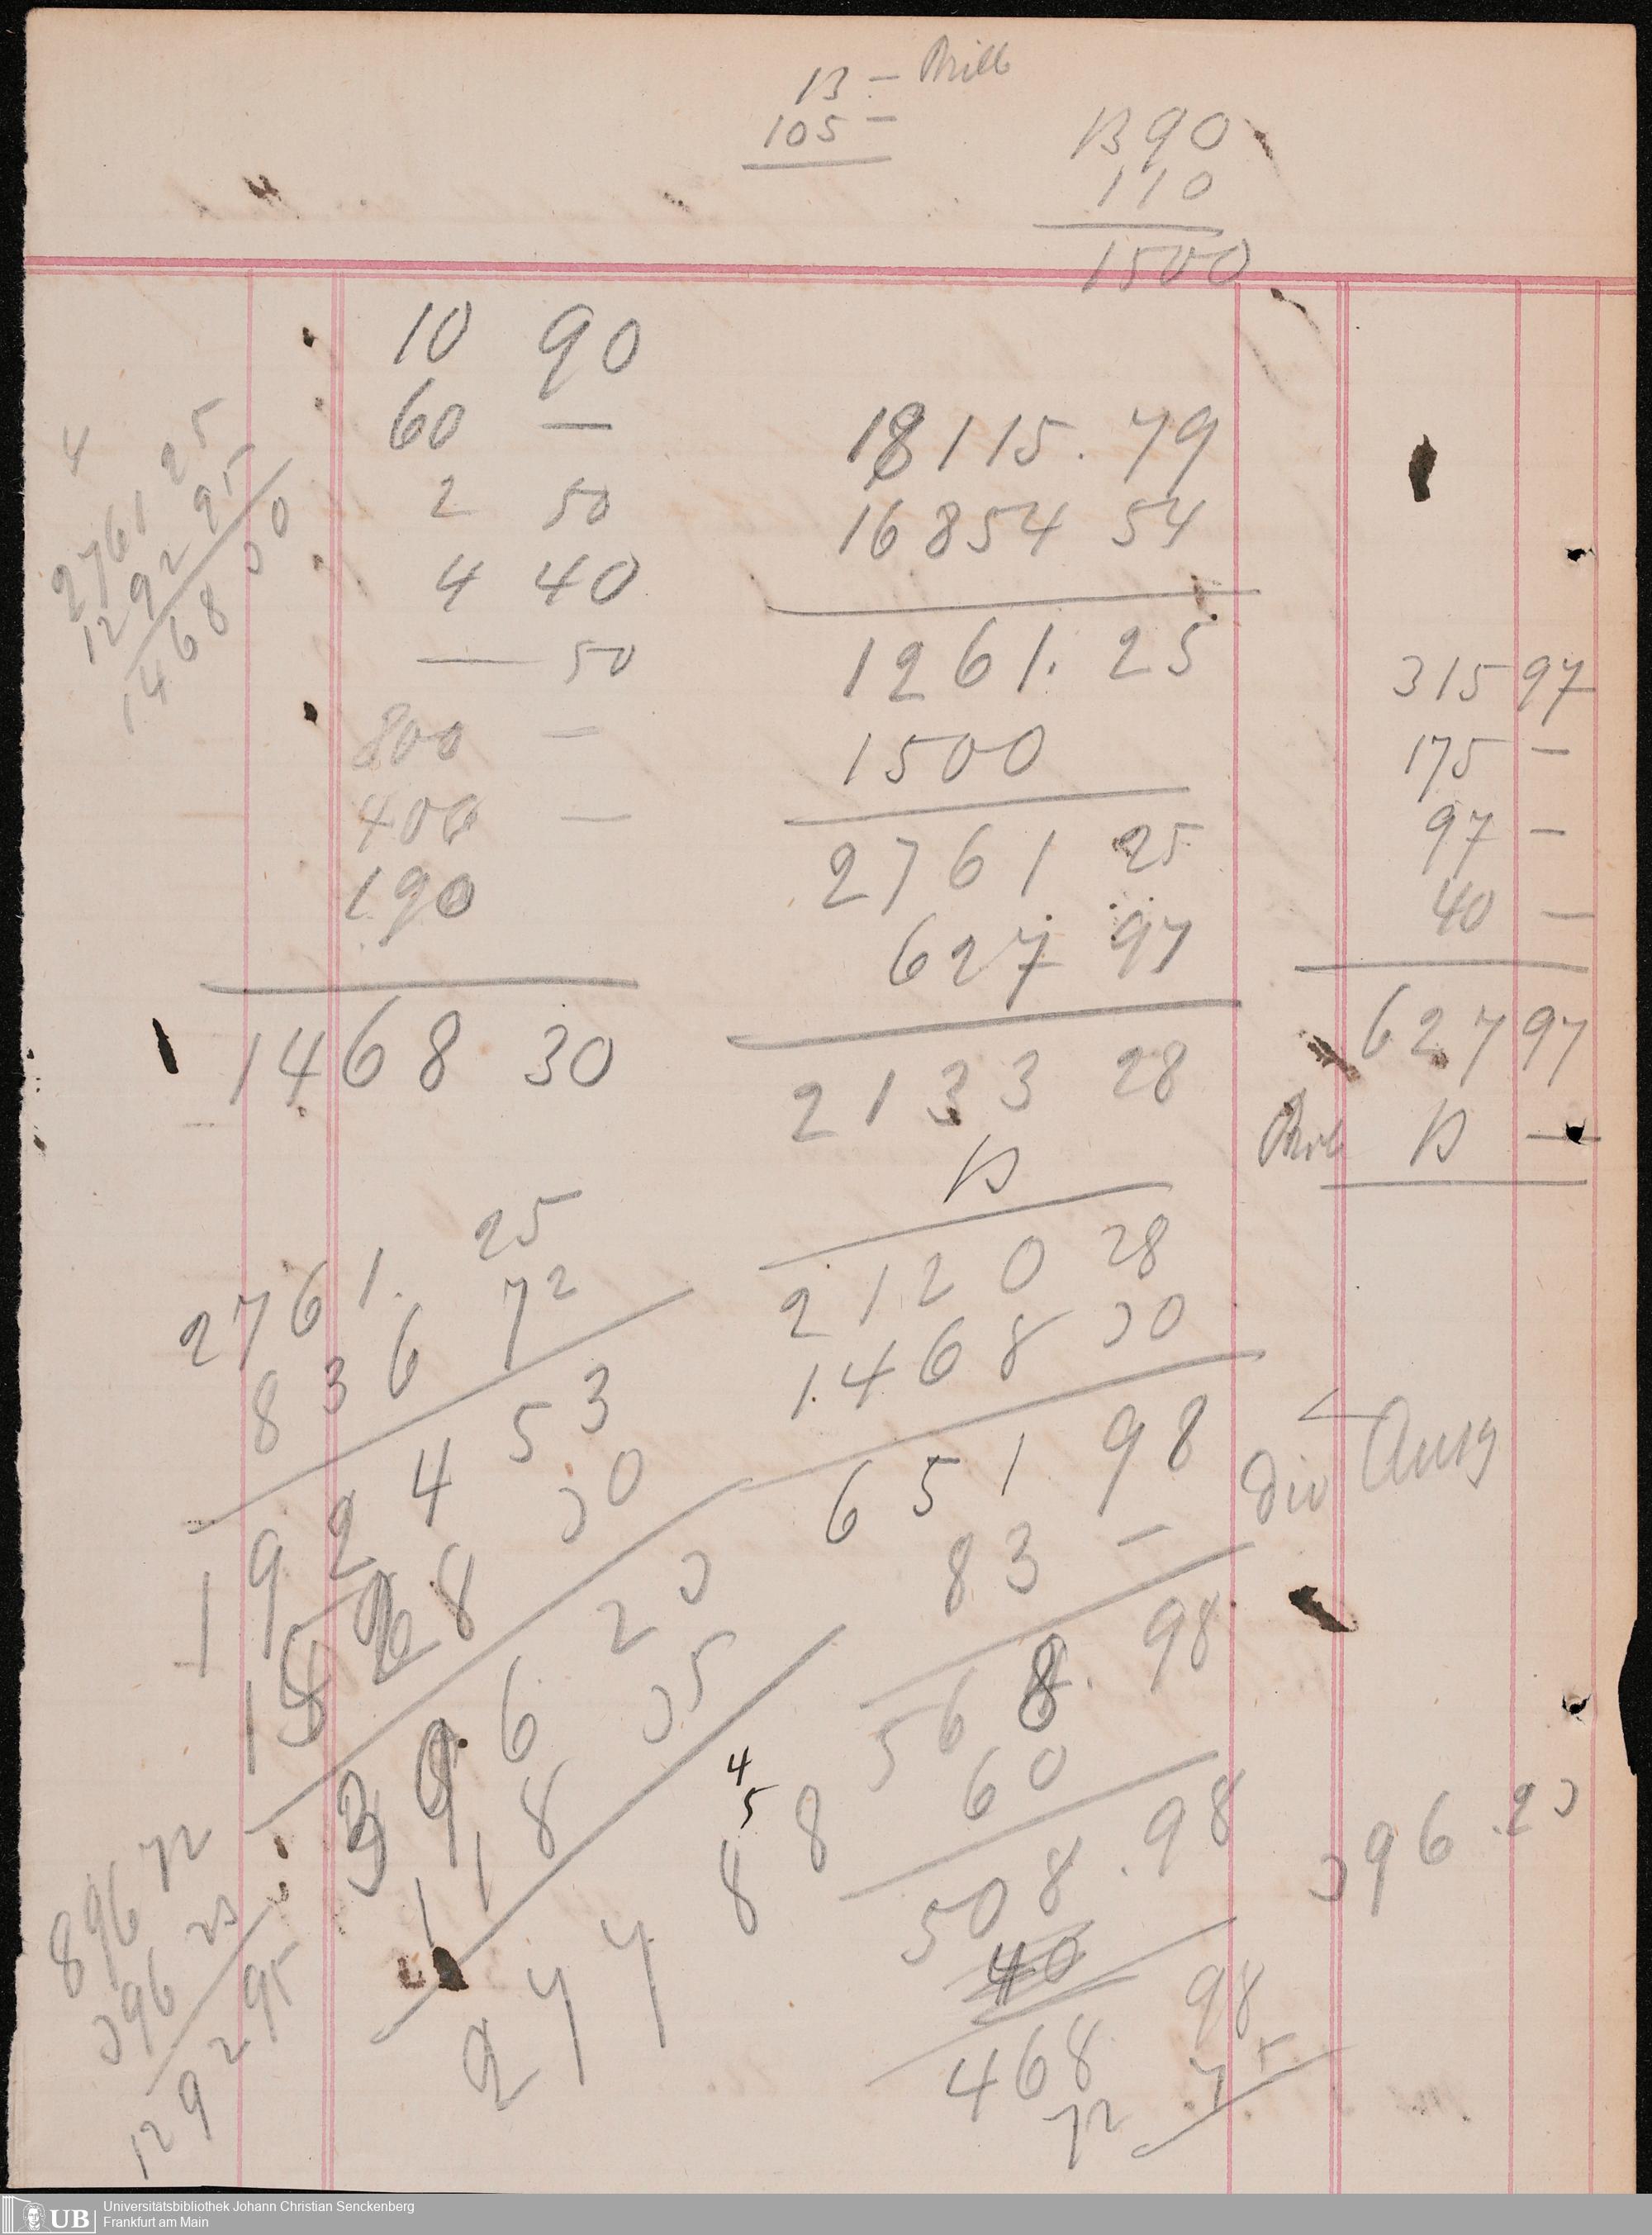 13 —
105 —
1390
110
1500
10 90
60 —
2 50
4 40
— 50
800 —
400 —
190
1468 30
4
2761 25
1292 95
1468 30
18115.79
16854 54
1261.25
1500
2761 25
627 97
2133 28
13
2120 28
1468 30
651 98
83 —
568.98
60
508.98
40
468 98
72 75
315 97
175 —
97 —
40 —
627 97
13 —
Div Ausg
2761. 25
836 72
1924 53
1528 30
396 23
118 35
277 88
4
5
896 72
396 23
1292 95
396.23
UB
Universitätsbibliothek Johann Christian Senckenberg
Frankfurt am Main